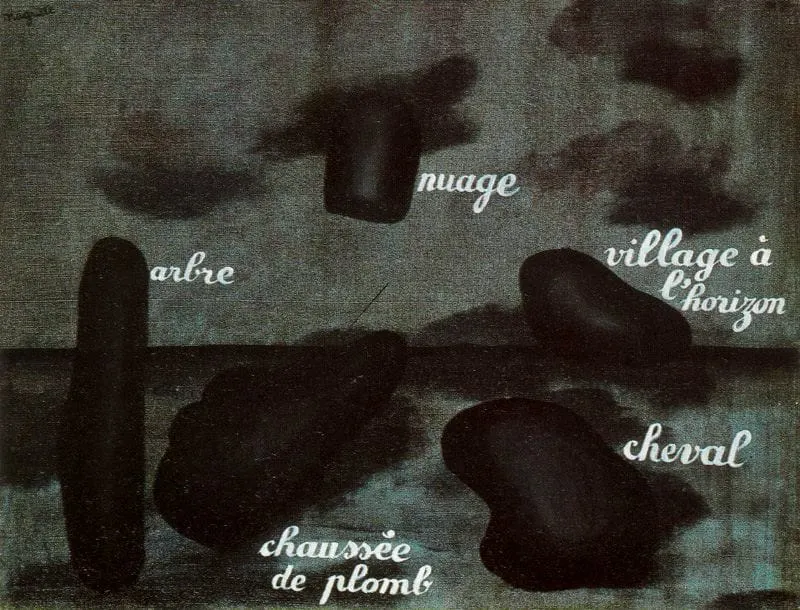 Magritte
nuage
arbre
village à
l'horizon
cheval
chaussée
de plomb